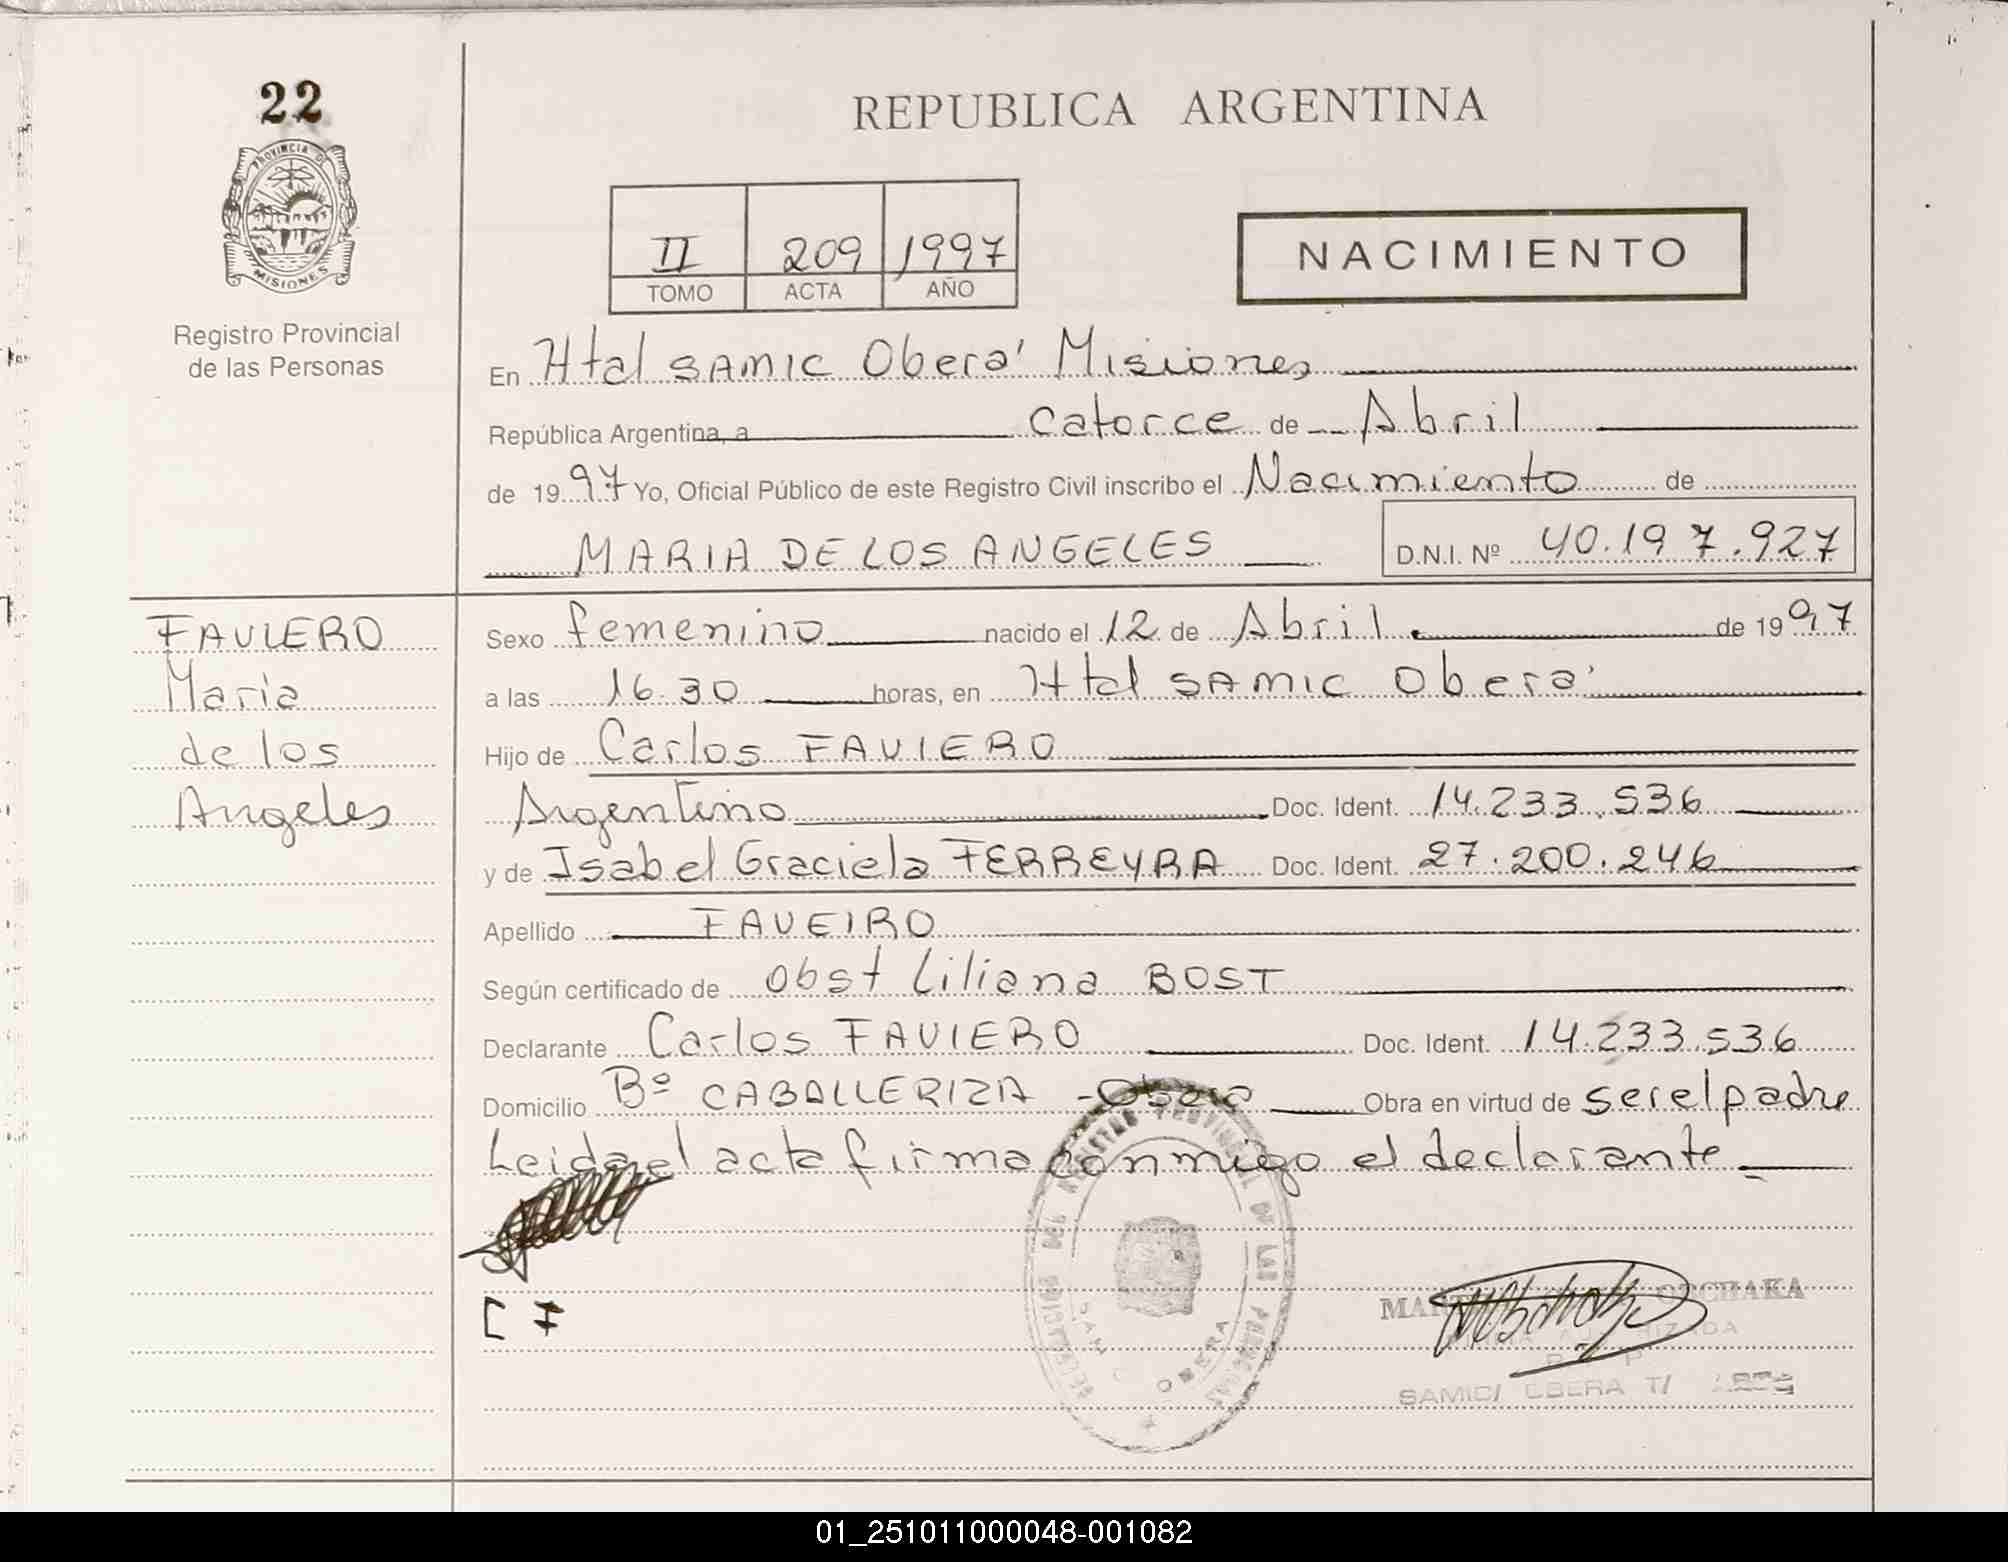 22
REPUBLICA ARGENTINA
PROVINCIA DE
MISIONES
Registro Provincial
de las Personas
II 209 1997
TOMO ACTA AÑO
NACIMIENTO
En Htal SAMIC Oberá Misiones
República Argentina, a catorce de Abril
de 1997 Yo, Oficial Público de este Registro Civil inscribo el Nacimiento de
MARIA DE LOS ANGELES D.N.I. Nº 40.197.927
FAVIERO
Maria
de los
Angeles
Sexo femenino nacido el 12 de Abril de 1997
a las 16.30 horas, en Htal SAMIC Oberá
Hijo de Carlos FAVIERO
Argentino Doc. Ident. 14.233.536
y de Isabel Graciela FERREYRA Doc. Ident. 27.200.246
Apellido FAVEIRO
Según certificado de Obst Liliana BOST
Declarante Carlos FAVIERO Doc. Ident. 14.233.536
Domicilio Bº CABALLERIZA - Oberá Obra en virtud de ser el padre
Leida el acta firma conmigo el declarante
C F
DEL REGISTRO PROVINCIAL DE LAS PERSONAS
OBERA
SAMIC/ OBERA T/
01_251011000048-001082